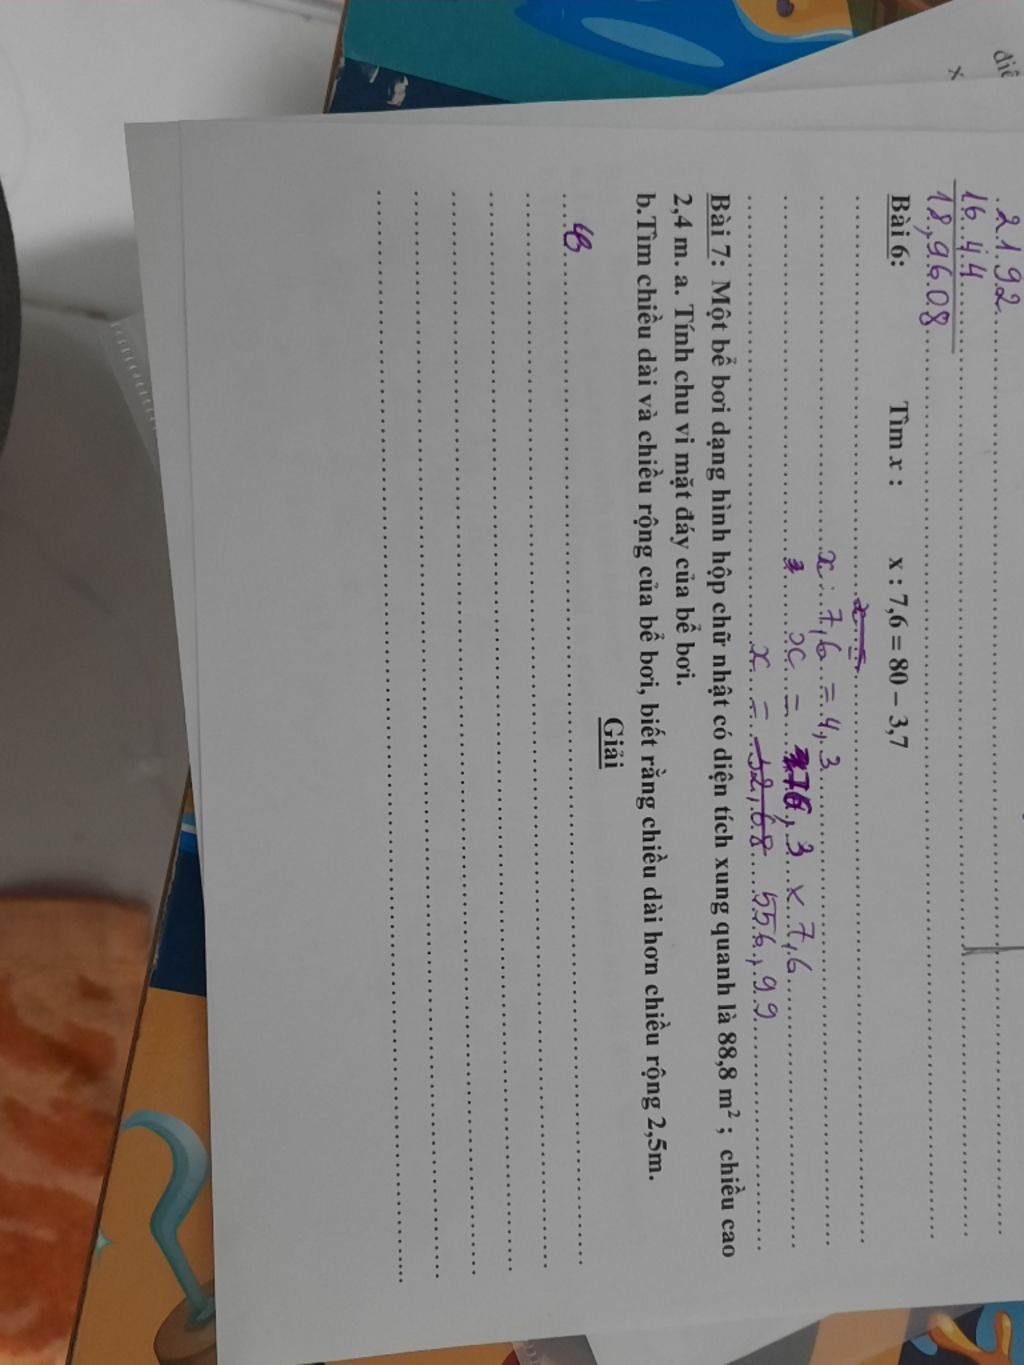 điề
x
2192
1644
18,9608
Bài 6: Tìm x : x : 7,6 = 80 – 3,7
x =
x : 7,6 = 4,3
x = 76,3 x 7,6
x = 32,68 556,99
Bài 7: Một bể bơi dạng hình hộp chữ nhật có diện tích xung quanh là 88,8 m² ; chiều cao
2,4 m. a. Tính chu vi mặt đáy của bể bơi.
b.Tìm chiều dài và chiều rộng của bể bơi, biết rằng chiều dài hơn chiều rộng 2,5m.
Giải